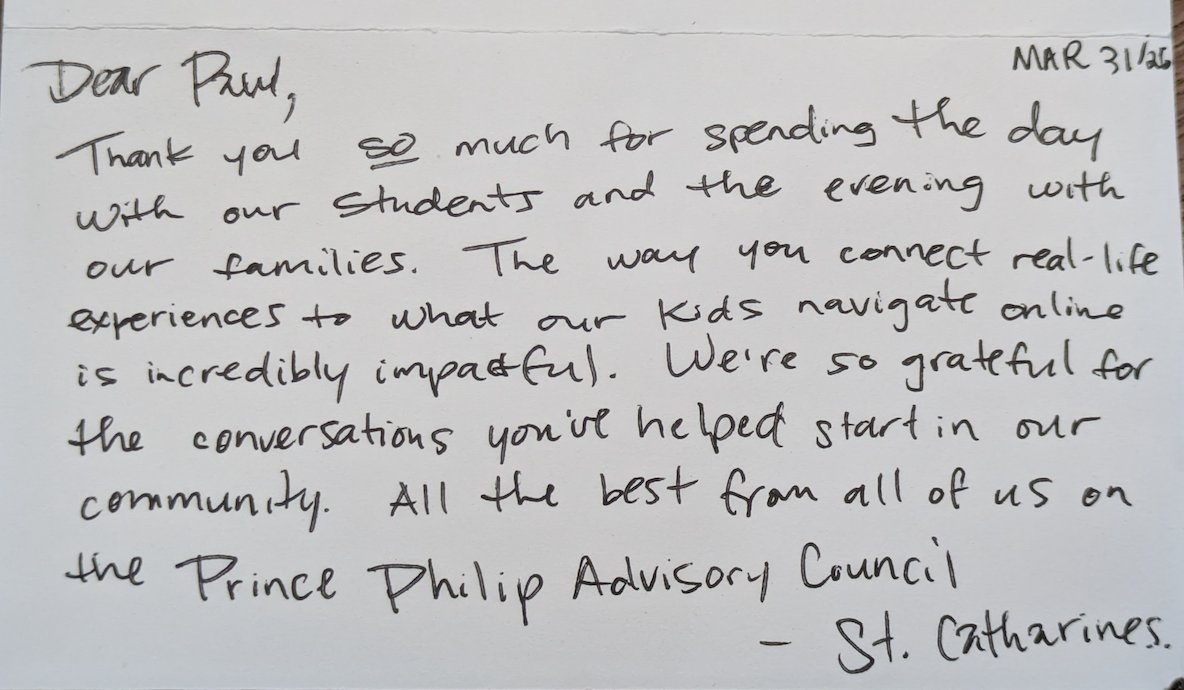 MAR 31/26
Dear Paul,
Thank you so much for spending the day
with our students and the evening with
our families. The way you connect real-life
experiences to what our kids navigate online
is incredibly impactful. We're so grateful for
the conversations you've helped start in our
community. All the best from all of us on
the Prince Philip Advisory Council
- St. Catharines.